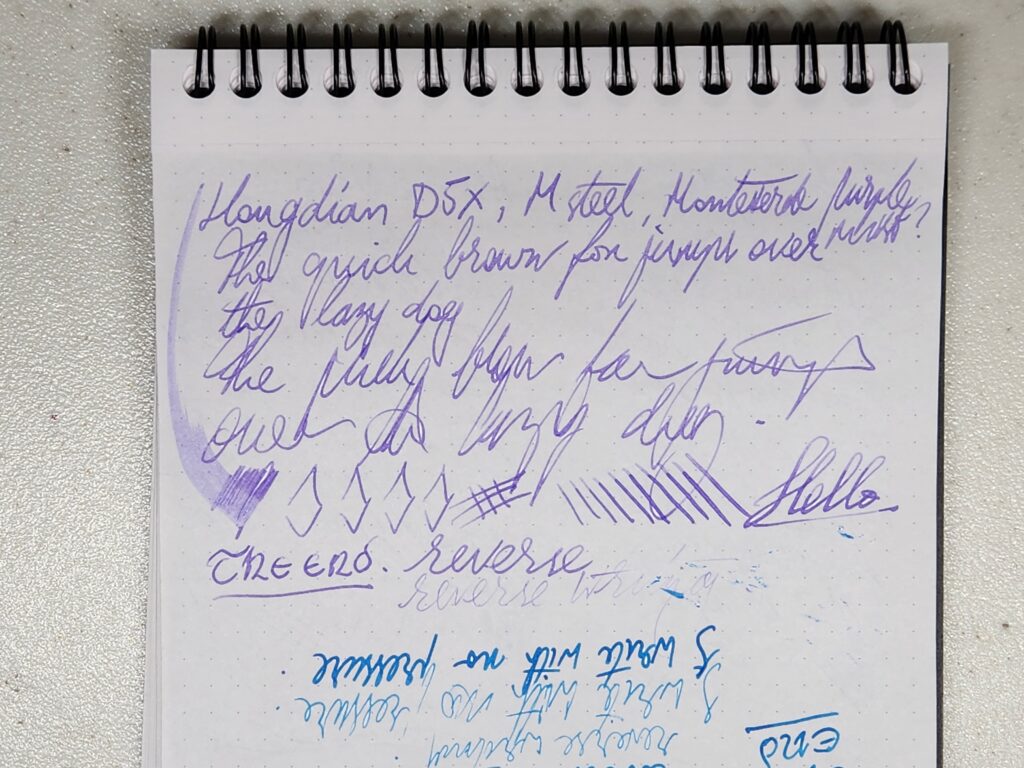 Hongdian D5X, M steel, Monteverde purple
mist?
The quick brown fox jumps over
the lazy dog
The brown fox jumps
over the lazy dog.
Hello
THE END. reverse
reverse writing
I write with no pressure.
I write with no pressure.
reverse writing
END